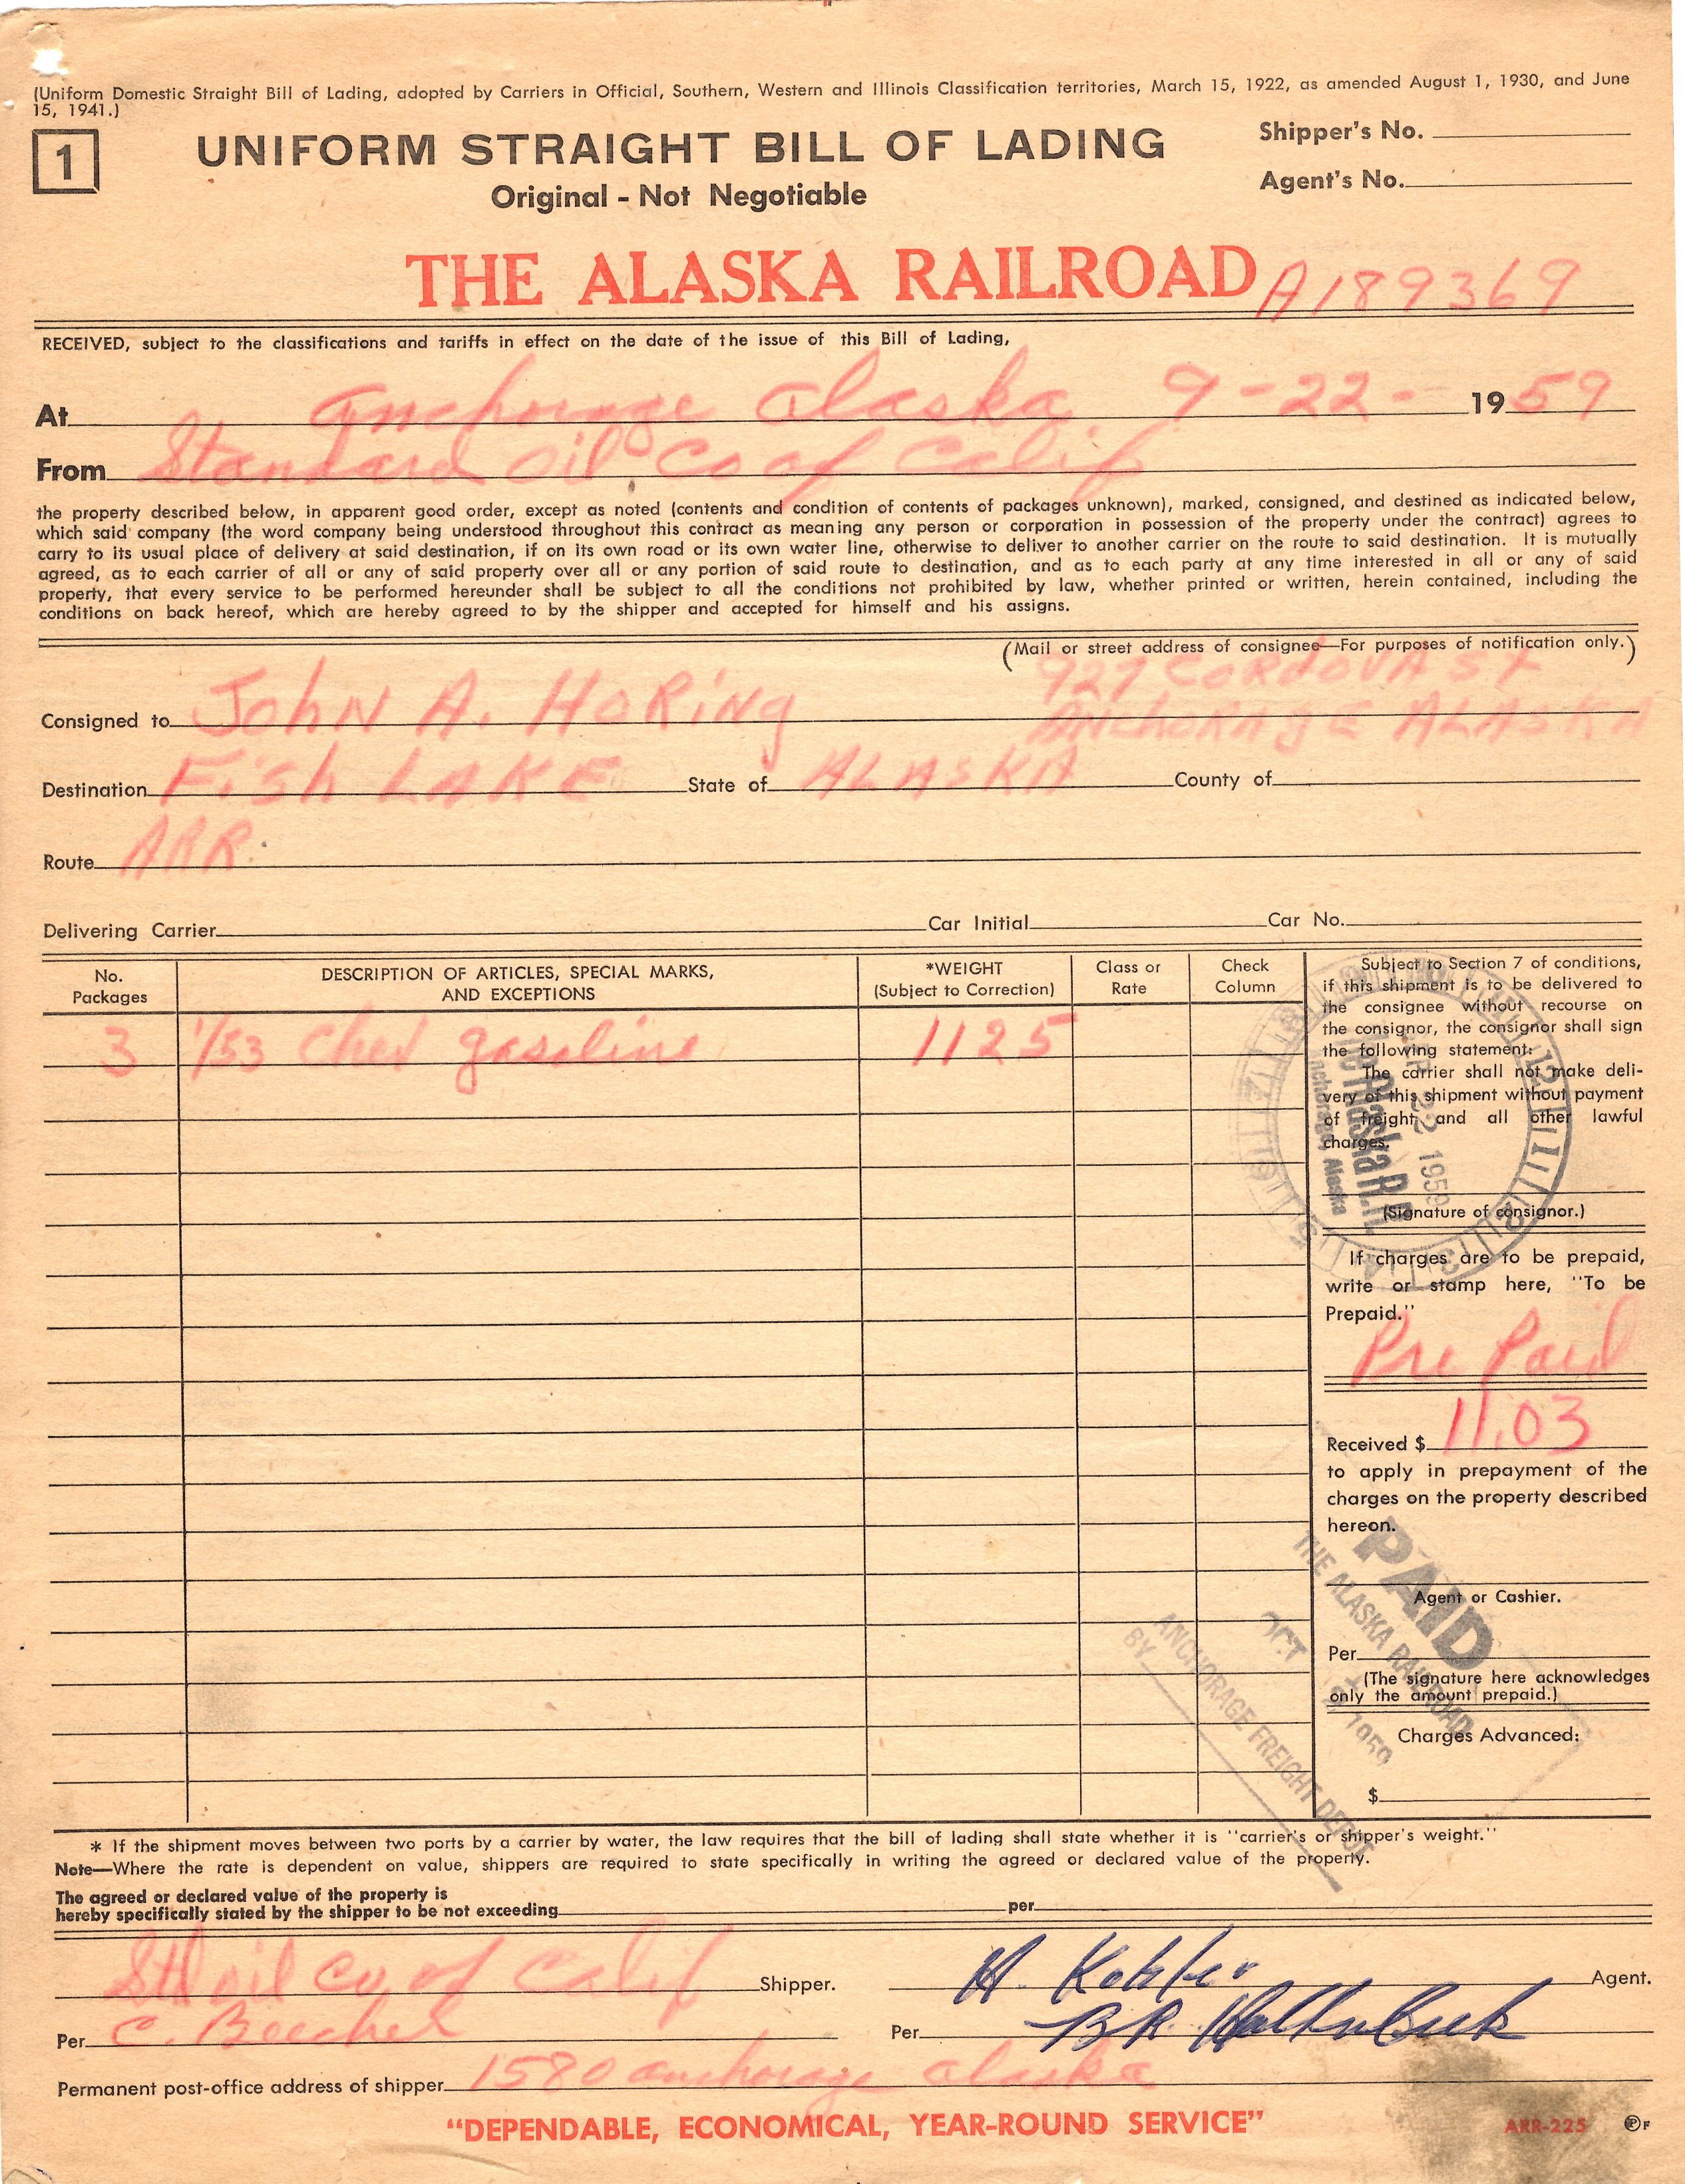 (Uniform Domestic Straight Bill of Lading, adopted by Carriers in Official, Southern, Western and Illinois Classification territories, March 15, 1922, as amended August 1, 1930, and June
15, 1941.)
1
UNIFORM STRAIGHT BILL OF LADING
Original - Not Negotiable
Shipper's No.
Agent's No.
THE ALASKA RAILROAD A189369
RECEIVED, subject to the classifications and tariffs in effect on the date of the issue of this Bill of Lading,
At Anchorage Alaska 9-22- 1959
From Standard Oil Co of Calif
the property described below, in apparent good order, except as noted (contents and condition of contents of packages unknown), marked, consigned, and destined as indicated below,
which said company (the word company being understood throughout this contract as meaning any person or corporation in possession of the property under the contract) agrees to
carry to its usual place of delivery at said destination, if on its own road or its own water line, otherwise to deliver to another carrier on the route to said destination. It is mutually
agreed, as to each carrier of all or any of said property over all or any portion of said route to destination, and as to each party at any time interested in all or any of said
property, that every service to be performed hereunder shall be subject to all the conditions not prohibited by law, whether printed or written, herein contained, including the
conditions on back hereof, which are hereby agreed to by the shipper and accepted for himself and his assigns.
(Mail or street address of consignee—For purposes of notification only.)
927 CORDOVA ST
Consigned to JohN A. HORiNg ANChORAgE ALASKA
Destination Fish LAKE State of ALASKA County of
Route ARR
Delivering Carrier Car Initial Car No.
No.
Packages
DESCRIPTION OF ARTICLES, SPECIAL MARKS,
AND EXCEPTIONS
*WEIGHT
(Subject to Correction)
Class or
Rate
Check
Column
3 1/53 Chev gasoline 1125
Subject to Section 7 of conditions,
if this shipment is to be delivered to
the consignee without recourse on
the consignor, the consignor shall sign
the following statement:
The carrier shall not make deli-
very of this shipment without payment
of freight and all other lawful
charges.
The Alaska R.R.
Anchorage Alaska
22 1959
(Signature of consignor.)
If charges are to be prepaid,
write or stamp here, "To be
Prepaid."
Pre Paid
Received $ 11.03
to apply in prepayment of the
charges on the property described
hereon.
Agent or Cashier.
Per
(The signature here acknowledges
only the amount prepaid.)
Charges Advanced:
$
PAID
THE ALASKA RAILROAD
OCT 1959
ANCHORAGE FREIGHT DEPOT
BY
* If the shipment moves between two ports by a carrier by water, the law requires that the bill of lading shall state whether it is "carrier's or shipper's weight."
Note—Where the rate is dependent on value, shippers are required to state specifically in writing the agreed or declared value of the property.
The agreed or declared value of the property is
hereby specifically stated by the shipper to be not exceeding per
Std oil co of Calif Shipper. H. Kohler Agent.
Per C. Beecher Per BR
Permanent post-office address of shipper 1580 anchorage alaska
"DEPENDABLE, ECONOMICAL, YEAR-ROUND SERVICE"
ARR-225